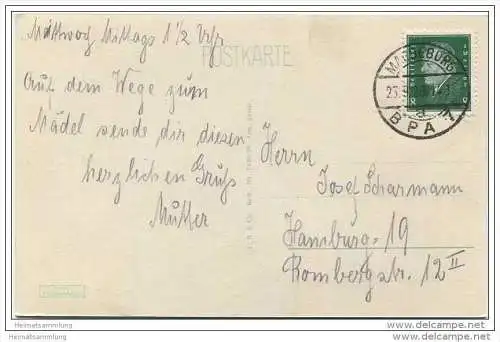 Mittwoch Mittags 1 1/2 Uhr
POSTKARTE
Auf dem Wege zum
Mädel sende dir diesen
herzlichen Gruß
Mutter
MAGDEBURG
BPA
Herrn
Josef Scharmann
Hamburg 19
Rombergstr. 12 II
Heimatsammlung
Heimatsammlung